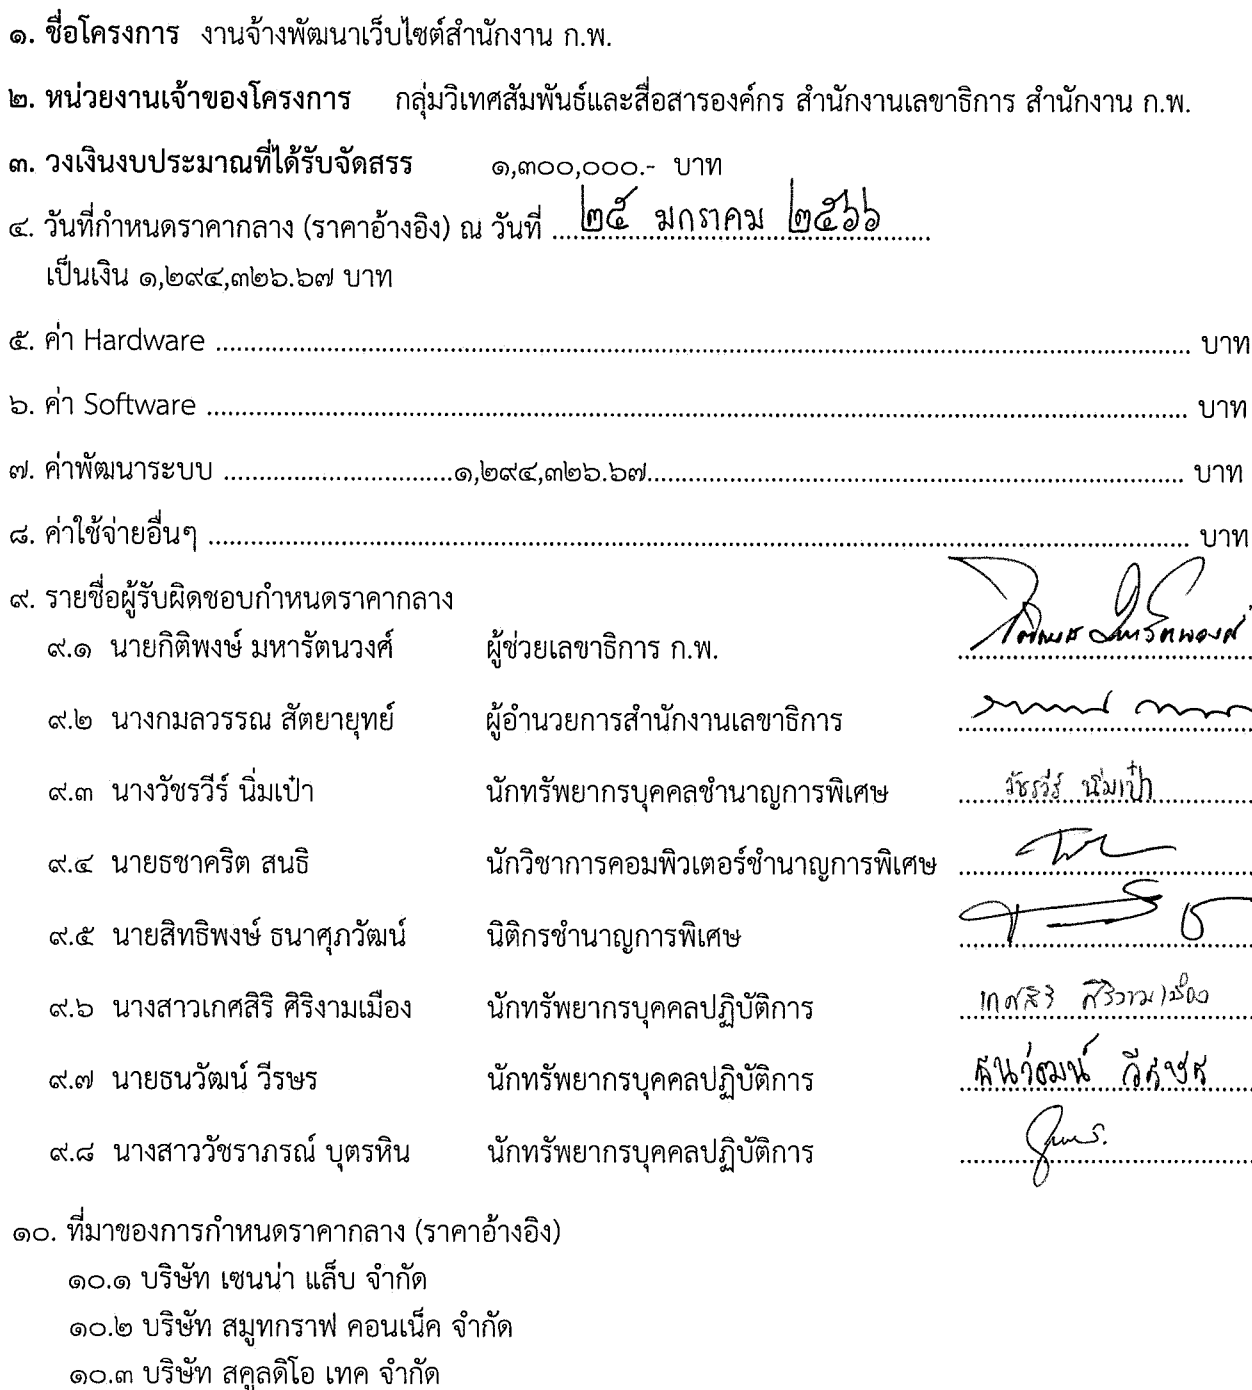 ๑. ชื่อโครงการ งานจ้างพัฒนาเว็บไซต์สำนักงาน ก.พ.
๒. หน่วยงานเจ้าของโครงการ กลุ่มวิเทศสัมพันธ์และสื่อสารองค์กร สำนักงานเลขาธิการ สำนักงาน ก.พ.
๓. วงเงินงบประมาณที่ได้รับจัดสรร ๑,๓๐๐,๐๐๐.- บาท
๔. วันที่กำหนดราคากลาง (ราคาอ้างอิง) ณ วันที่ ๒๕ มกราคม ๒๕๖๖
เป็นเงิน ๑,๒๙๔,๓๒๖.๖๗ บาท
๕. ค่า Hardware ........ บาท
๖. ค่า Software ........ บาท
๗. ค่าพัฒนาระบบ ........๑,๒๙๔,๓๒๖.๖๗........ บาท
๘. ค่าใช้จ่ายอื่นๆ ........ บาท
๙. รายชื่อผู้รับผิดชอบกำหนดราคากลาง
๙.๑ นายกิติพงษ์ มหารัตนวงศ์ ผู้ช่วยเลขาธิการ ก.พ.
๙.๒ นางกมลวรรณ สัตยายุทย์ ผู้อำนวยการสำนักงานเลขาธิการ
๙.๓ นางวัชรวีร์ นิ่มเป๋า นักทรัพยากรบุคคลชำนาญการพิเศษ วัชรวีร์ นิ่มเป๋า
๙.๔ นายธชาคริต สนธิ นักวิชาการคอมพิวเตอร์ชำนาญการพิเศษ
๙.๕ นายสิทธิพงษ์ ธนาศุภวัฒน์ นิติกรชำนาญการพิเศษ
๙.๖ นางสาวเกศสิริ ศิริงามเมือง นักทรัพยากรบุคคลปฏิบัติการ เกศสิริ ศิริงามเมือง
๙.๗ นายธนวัฒน์ วีรษร นักทรัพยากรบุคคลปฏิบัติการ ธนวัฒน์ วีรษร
๙.๘ นางสาววัชราภรณ์ บุตรหิน นักทรัพยากรบุคคลปฏิบัติการ
๑๐. ที่มาของการกำหนดราคากลาง (ราคาอ้างอิง)
๑๐.๑ บริษัท เซนน่า แล็บ จำกัด
๑๐.๒ บริษัท สมูทกราฟ คอนเน็ค จำกัด
๑๐.๓ บริษัท สคูลดิโอ เทค จำกัด